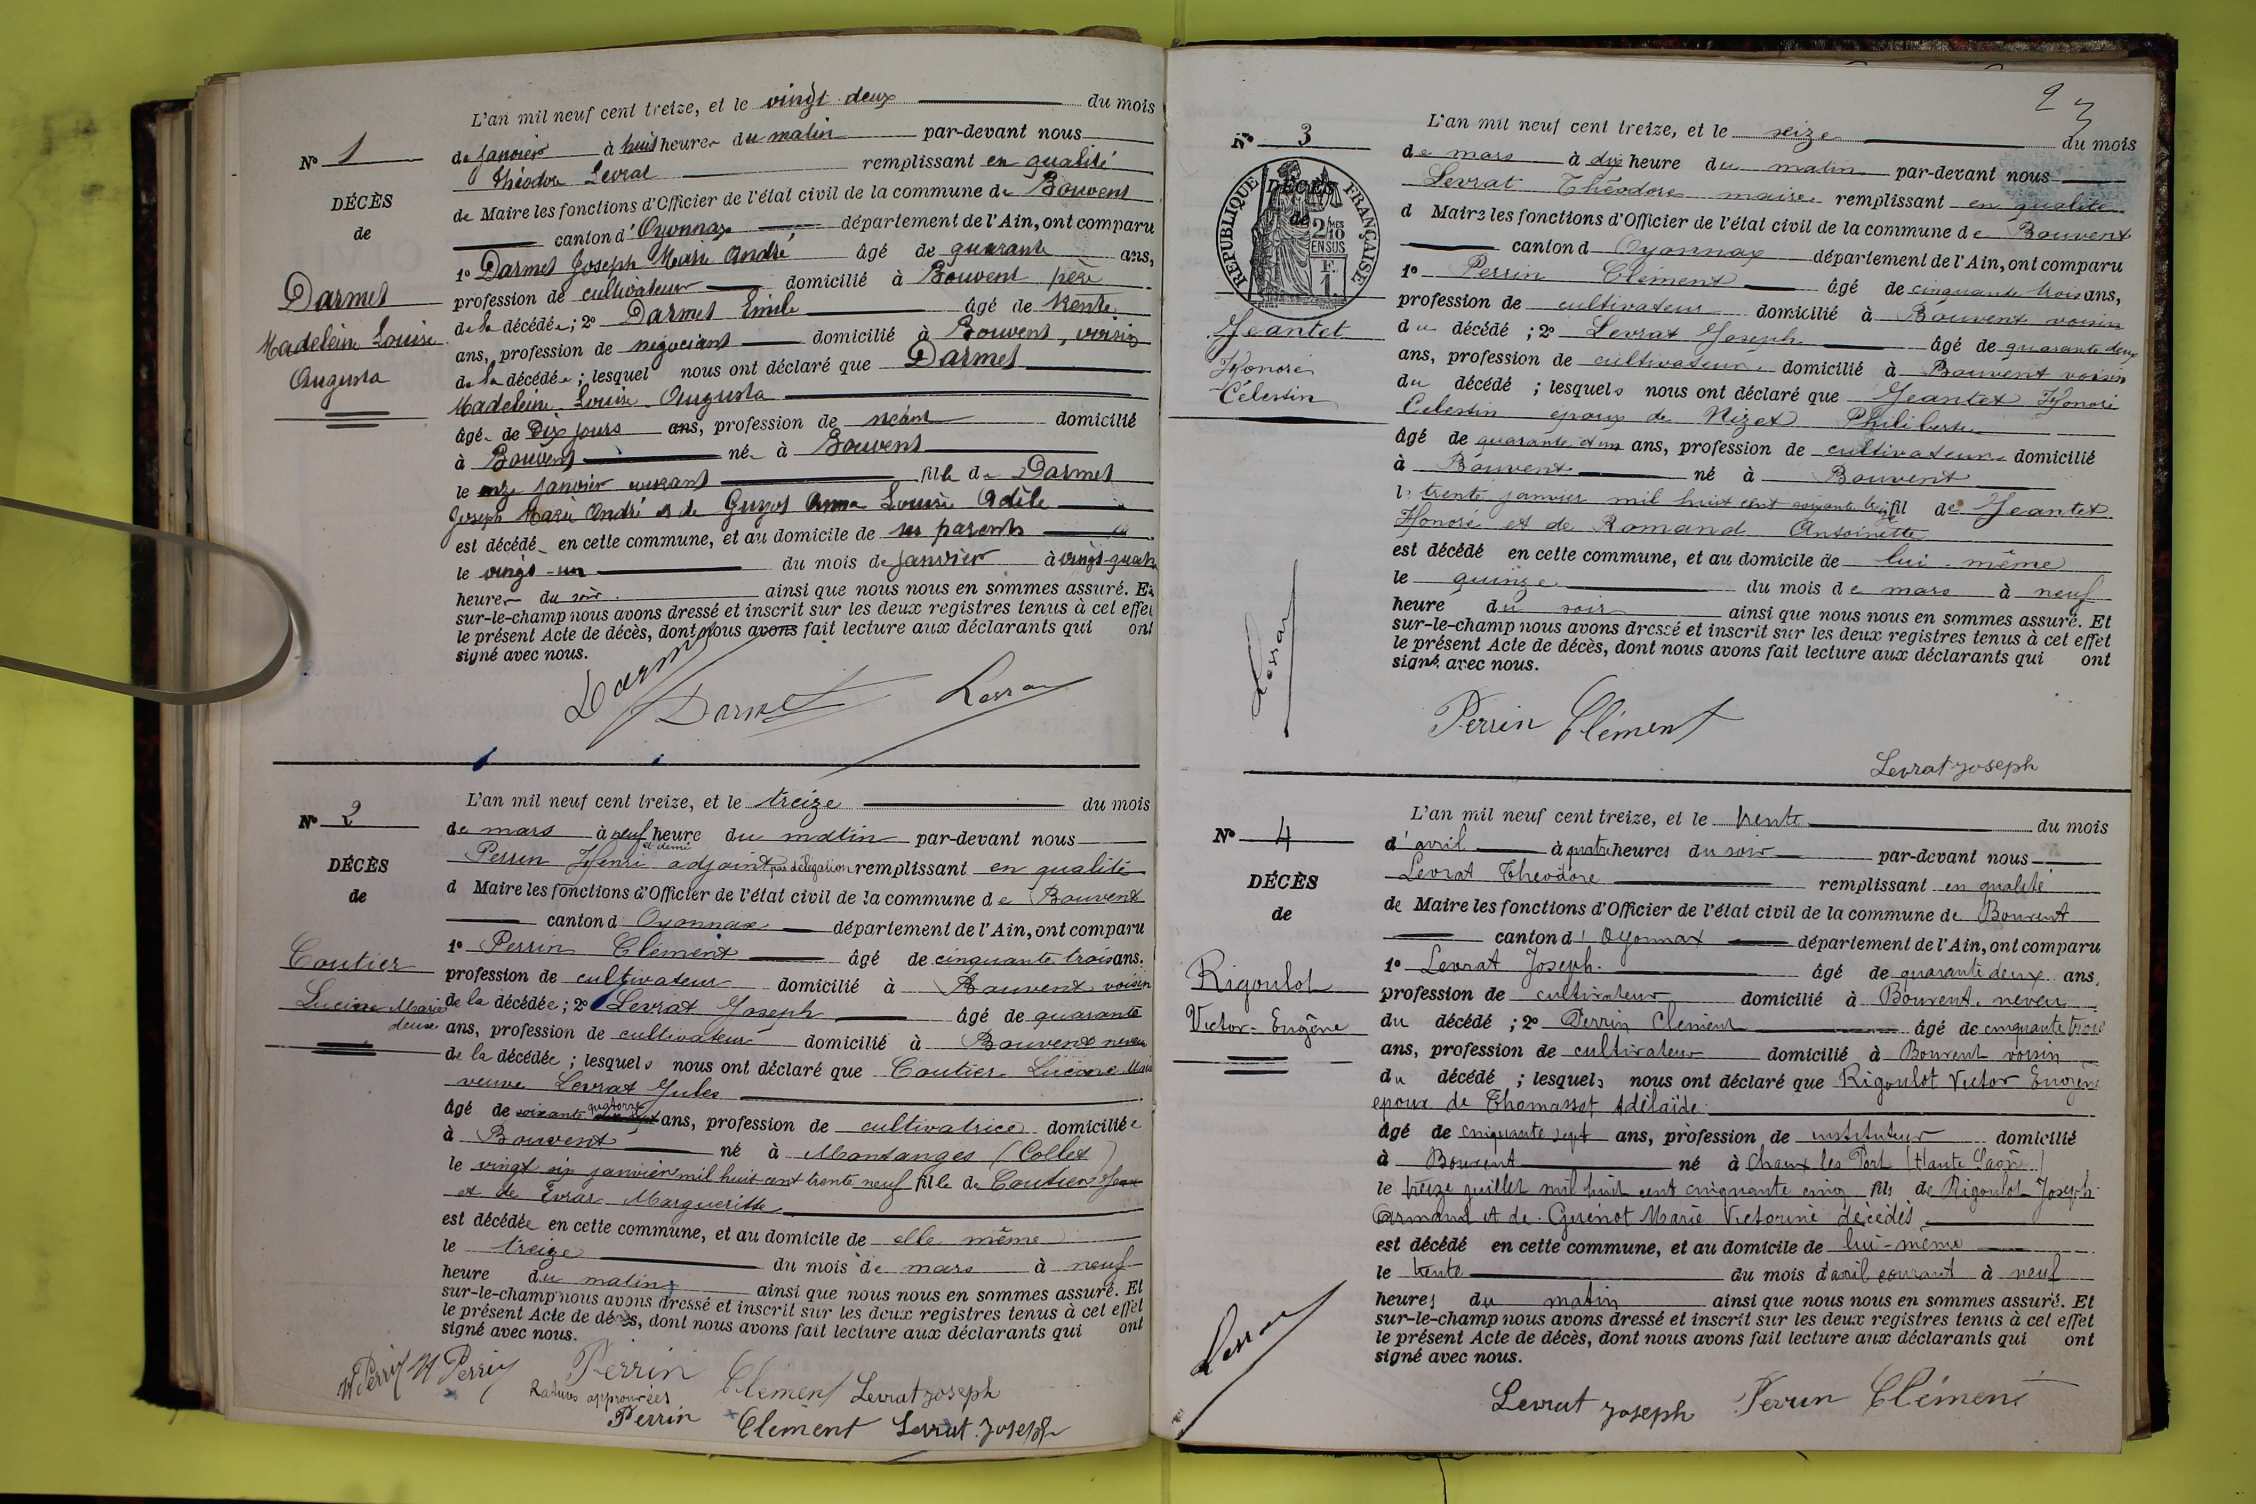 L'an mil neuf cent treize, et le vingt deux du mois
No 1
de janvier à huit heures du matin par-devant nous
Théodore Levrat remplissant en qualité
DÉCÈS
de Maire les fonctions d'Officier de l'état civil de la commune de Bouvent
de
canton d'Oyonnax département de l'Ain, ont comparu
1o Darmet Joseph Marie André âgé de quarante ans,
Darmet
profession de cultivateur domicilié à Bouvent père
de la décédée; 2o Darmet Emile âgé de trente
Madeleine Louise
ans, profession de négociant domicilié à Bouvent, voisin
Augusta
de la décédée; lesquel nous ont déclaré que Darmet
Madeleine Louise Augusta
âgée de Dix jours ans, profession de néant domicilié
à Bouvent née à Bouvent
le onze janvier courant fille de Darmet
Joseph Marie André et de Guyot Anna Louise Adèle
est décédé en cette commune, et au domicile de ses parents
le vingt-un du mois de janvier à vingt-quatre
heures du soir ainsi que nous nous en sommes assuré. Et
sur-le-champ nous avons dressé et inscrit sur les deux registres tenus à cet effet
le présent Acte de décès, dont nous avons fait lecture aux déclarants qui ont
signé avec nous.
Darmet
Darmet
Levrat
L'an mil neuf cent treize, et le treize du mois
No 2
de mars à neuf heure du matin par-devant nous
et demi
Perrin Henri adjoint par délégation remplissant en qualité
DÉCÈS
d Maire les fonctions d'Officier de l'état civil de la commune de Bouvent
de
canton d Oyonnax département de l'Ain, ont comparu
1o Perrin Clément âgé de cinquante trois ans.
Coutier
profession de cultivateur domicilié à Bouvent voisin
Lucine Marie
de la décédée; 2o Levrat Joseph âgé de quarante
deux
ans, profession de cultivateur domicilié à Bouvent neveu
de la décédée; lesquels nous ont déclaré que Coutier Lucine Marie
veuve Levrat Jules
âgé de soixante quatorze ans, profession de cultivatrice domiciliée
à Bouvent né à Montanges (Collet)
le vingt six janvier mil huit cent trente neuf fille de Coutier Jean
et de Evrar Margueritte
est décédée en cette commune, et au domicile de elle même
le treize du mois de mars à neuf
heure du matin ainsi que nous nous en sommes assuré. Et
sur-le-champ nous avons dressé et inscrit sur les deux registres tenus à cet effet
le présent Acte de décès, dont nous avons fait lecture aux déclarants qui ont
signé avec nous.
H Perrin H Perrin Perrin Clément Levrat joseph
Ratures approuvées
Perrin Clément Levrat Joseph
23
L'an mil neuf cent treize, et le seize du mois
No 3
de mars à dix heure du matin par-devant nous
Levrat Théodore maire remplissant en qualité
DÉCÈS
RÉPUBLIQUE FRANÇAISE
2/10MES EN SUS
F. 1.
d Maire les fonctions d'Officier de l'état civil de la commune de Bouvent
de
canton d Oyonnax département de l'Ain, ont comparu
1o Perrin Clément âgé de cinquante trois ans,
profession de cultivateur domicilié à Bouvent voisin
Jeantet
du décédé; 2o Levrat Joseph âgé de quarante deux
Honoré
ans, profession de cultivateur domicilié à Bouvent voisin
Célestin
du décédé; lesquels nous ont déclaré que Jeantet Honoré
Celestin époux de Nizet Philiberte
âgé de quarante et un ans, profession de cultivateur domicilié
à Bouvent né à Bouvent
le trente janvier mil huit cent soixante fil de Jeantet
Honoré et de Romand Antoinette
est décédé en cette commune, et au domicile de lui-même
le quinze du mois de mars à neuf
heure du soir ainsi que nous nous en sommes assuré. Et
sur-le-champ nous avons dressé et inscrit sur les deux registres tenus à cet effet
le présent Acte de décès, dont nous avons fait lecture aux déclarants qui ont
signé avec nous.
Levrat
Perrin Clément
Levrat joseph
L'an mil neuf cent treize, et le trente du mois
No 4
d'avril à quatre heures du soir par-devant nous
Levrat Théodore remplissant en qualité
DÉCÈS
de Maire les fonctions d'Officier de l'état civil de la commune de Bouvent
de
canton d'Oyonnax département de l'Ain, ont comparu
1o Levrat Joseph. âgé de quarante deux ans,
Rigoulot
profession de cultivateur domicilié à Bouvent, neveu
Victor-Eugène
du décédé; 2o Perrin Clément âgé de cinquante trois
ans, profession de cultivateur domicilié à Bouvent voisin
du décédé; lesquels nous ont déclaré que Rigoulot Victor Eugène
epoux de Thomasset Adélaïde
âgé de cinquante sept ans, profession de instituteur domicilié
à Bouvent né à Chaux les Port (Haute Saône)
le treize juillet mil huit cent cinquante cinq fils de Rigoulot Joseph
Armand et de Guénot Marie Victorine décédés
est décédé en cette commune, et au domicile de lui-même
le trente du mois d'avril courant à neuf
heures du matin ainsi que nous nous en sommes assuré. Et
sur-le-champ nous avons dressé et inscrit sur les deux registres tenus à cet effet
le présent Acte de décès, dont nous avons fait lecture aux déclarants qui ont
signé avec nous.
Levrat
Levrat joseph Perrin Clément